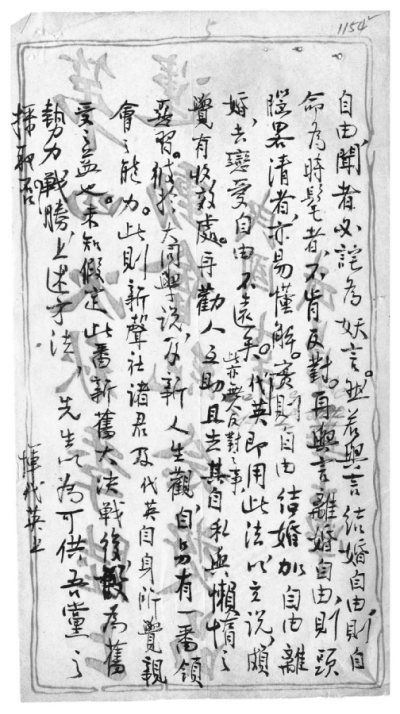 1154
5
自由,聞者必詫為妖言。然若與言結婚自由,則自
命為時髦者,不肯反對。再與言離婚自由,則頭
腦畧清者,亦易懂解。實則自由結婚加自由離
婚,去戀愛自由不遠矣。代英即用此法以立說,頗
此亦無人反對之事,
覺有收效處。再勸人互助且去其自私與懶惰之
惡習。彼於大同學說,及新人生觀,自易有一番領
會之能力。此則新聲社諸君及代英自身所覺親
受之益也。未知假定此番新舊大決戰後,為舊
勢力戰勝,上述方法,先生以為可供吾黨之
採取否
惲代英上